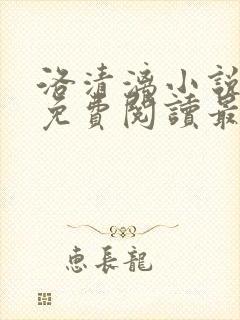 洛清漓小說
免費閱讀最
惠長龍